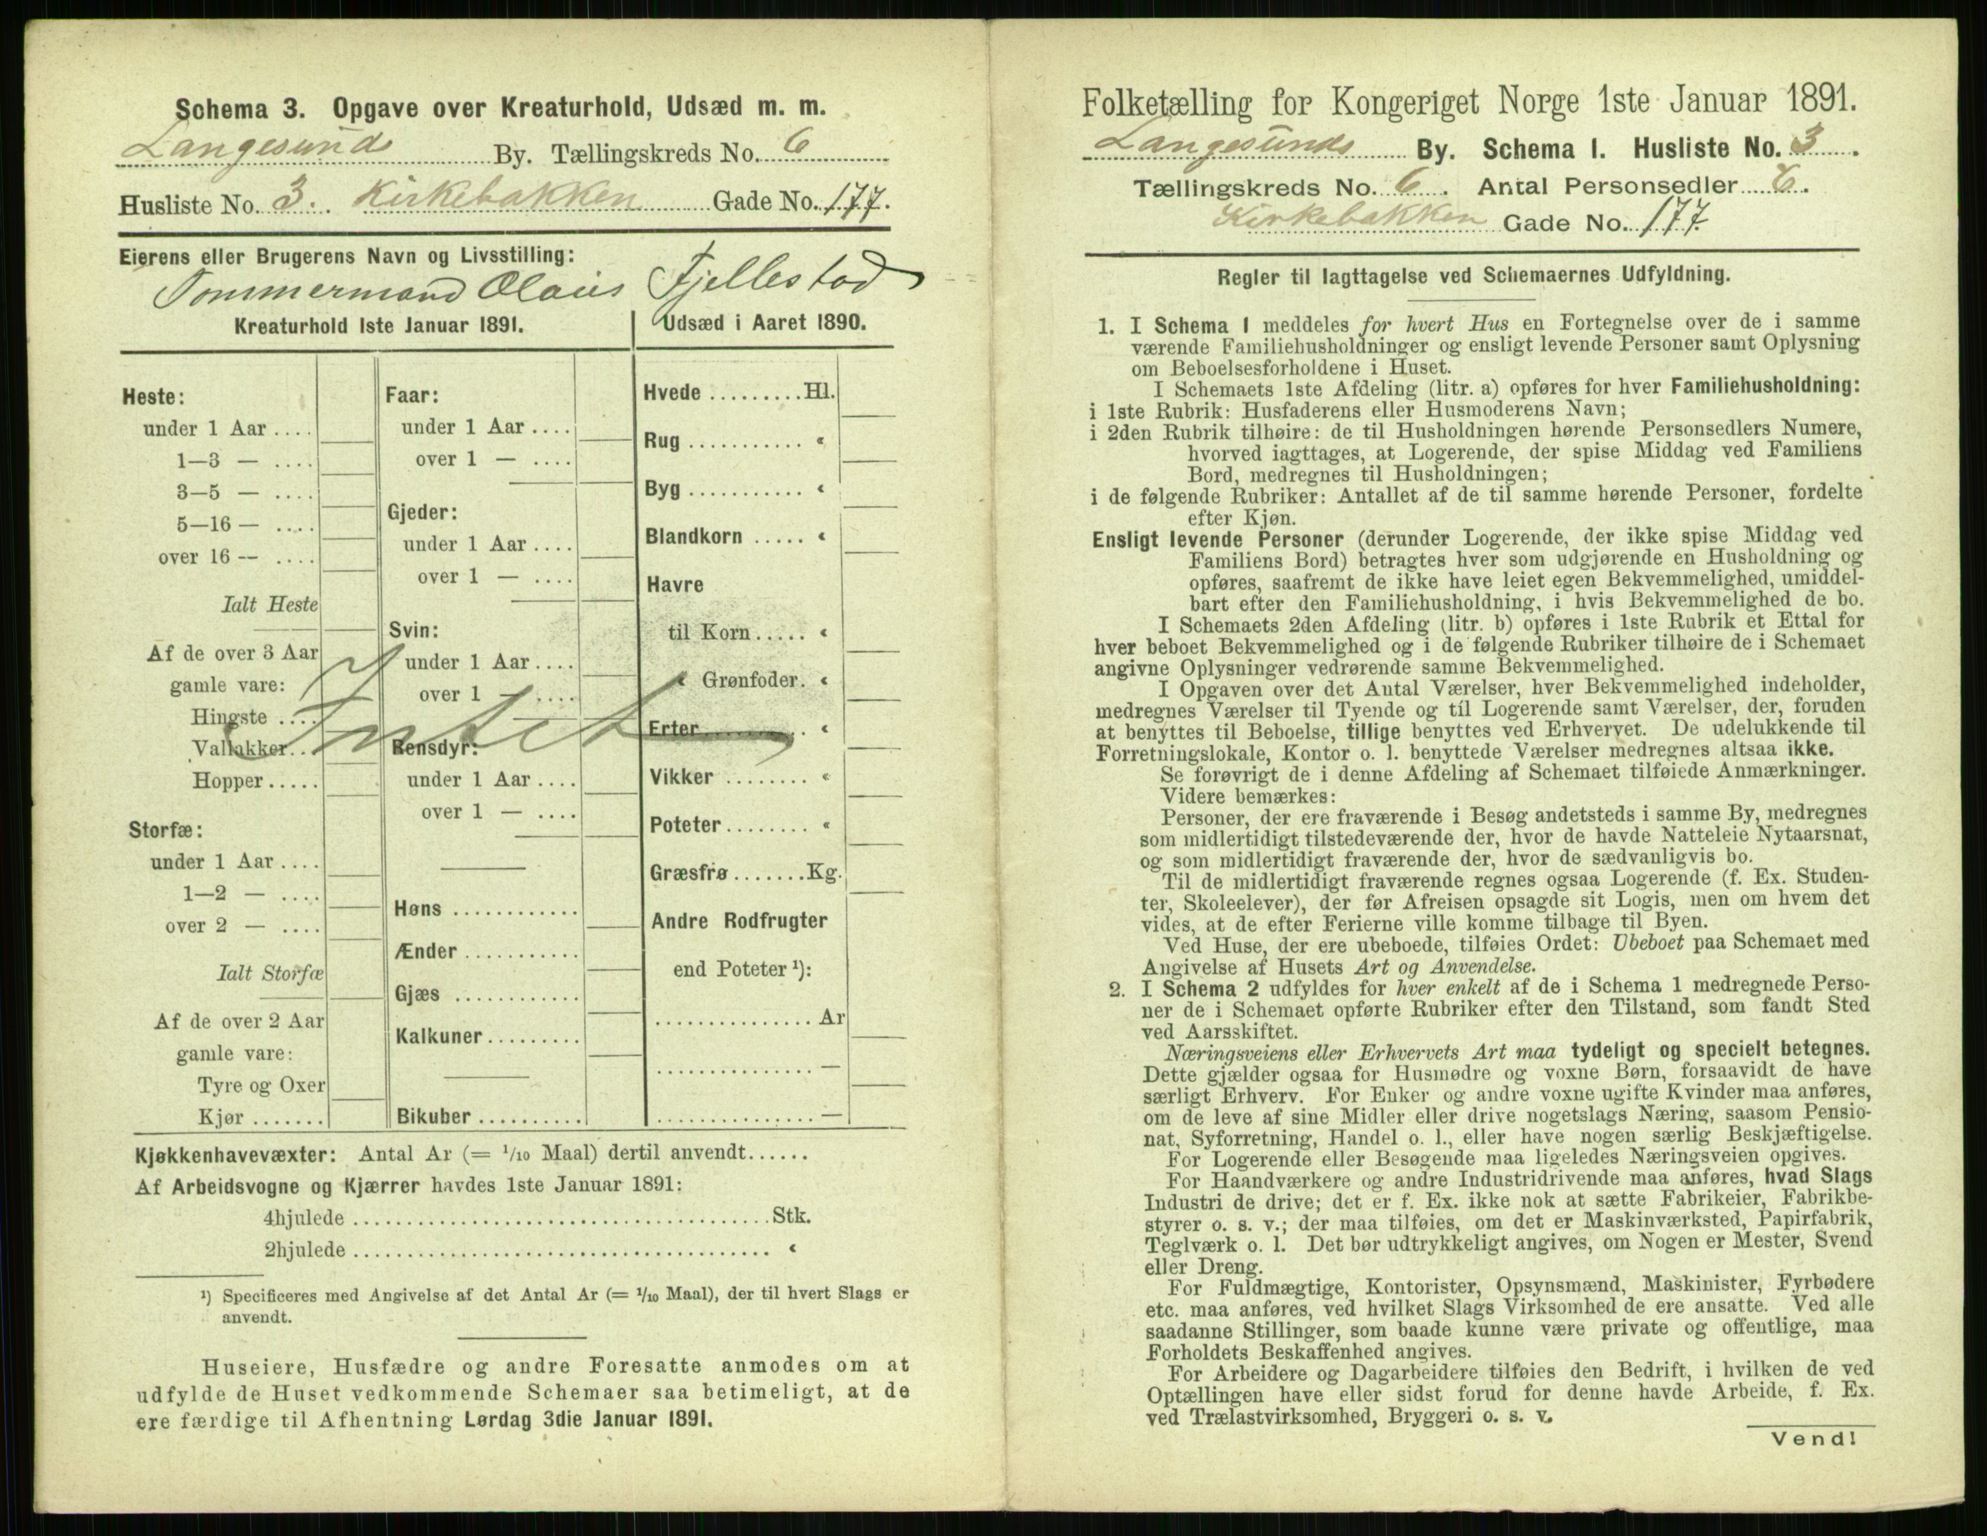 Schema 3. Opgave over Kreaturhold, Udsæd m. m.
Langesunds By. Tællingskreds No. 6
Husliste No. 3. Kirkebakken Gade No. 177.
Eierens eller Brugerens Navn og Livsstilling:
Tømmermand Olaus Fjellestad
Kreaturhold 1ste Januar 1891.
Heste:
under 1 Aar ....
1—3 — ....
3—5 — ....
5—16 — ....
over 16 — ....
Ialt Heste
Af de over 3 Aar
gamle vare:
Hingste ....
Vallakker..
Hopper.....
Storfæ:
under 1 Aar ....
1—2 — ....
over 2 — ....
Ialt Storfæ
Af de over 2 Aar
gamle vare:
Tyre og Oxer
Kjør .......
Faar:
under 1 Aar ....
over 1 — ....
Gjeder:
under 1 Aar ....
over 1 — ....
Svin:
under 1 Aar ....
over 1 — ....
Intet
Rensdyr:
under 1 Aar ....
over 1 — ....
Høns ............
Ænder ...........
Gjæs ............
Kalkuner.........
Bikuber ..........
Udsæd i Aaret 1890.
Hvede .........Hl.
Rug ........... «
Byg ........... «
Blandkorn ..... «
Havre
til Korn..... «
« Grønfoder. «
Erter.......... «
Vikker ........ «
Poteter ........ «
Græsfrø .......Kg.
Andre Rodfrugter
end Poteter ¹):
............... Ar
............... —
............... —
Kjøkkenhavevæxter: Antal Ar (= 1/10 Maal) dertil anvendt......
Af Arbeidsvogne og Kjærrer havdes 1ste Januar 1891:
4hjulede ......................................Stk.
2hjulede ...................................... «
¹) Specificeres med Angivelse af det Antal Ar (= 1/10 Maal), der til hvert Slags er
anvendt.
Huseiere, Husfædre og andre Foresatte anmodes om at
udfylde de Huset vedkommende Schemaer saa betimeligt, at de
ere færdige til Afhentning Lørdag 3die Januar 1891.
Folketælling for Kongeriget Norge 1ste Januar 1891.
Langesunds By. Schema 1. Husliste No. 3.
Tællingskreds No. 6. Antal Personsedler 6.
Kirkebakken Gade No. 177.
Regler til Iagttagelse ved Schemaernes Udfyldning.
1. I Schema 1 meddeles for hvert Hus en Fortegnelse over de i samme
værende Familiehusholdninger og ensligt levende Personer samt Oplysning
om Beboelsesforholdene i Huset.
I Schemaets 1ste Afdeling (litr. a) opføres for hver Familiehusholdning:
i 1ste Rubrik: Husfaderens eller Husmoderens Navn;
i 2den Rubrik tilhøire: de til Husholdningen hørende Personsedlers Numere,
hvorved iagttages, at Logerende, der spise Middag ved Familiens
Bord, medregnes til Husholdningen;
i de følgende Rubriker: Antallet af de til samme hørende Personer, fordelte
efter Kjøn.
Ensligt levende Personer (derunder Logerende, der ikke spise Middag ved
Familiens Bord) betragtes hver som udgjørende en Husholdning og
opføres, saafremt de ikke have leiet egen Bekvemmelighed, umiddel-
bart efter den Familiehusholdning, i hvis Bekvemmelighed de bo.
I Schemaets 2den Afdeling (litr. b) opføres i 1ste Rubrik et Ettal for
hver beboet Bekvemmelighed og i de følgende Rubriker tilhøire de i Schemaet
angivne Oplysninger vedrørende samme Bekvemmelighed.
I Opgaven over det Antal Værelser, hver Bekvemmelighed indeholder,
medregnes Værelser til Tyende og til Logerende samt Værelser, der, foruden
at benyttes til Beboelse, tillige benyttes ved Erhvervet. De udelukkende til
Forretningslokale, Kontor o. l. benyttede Værelser medregnes altsaa ikke.
Se forøvrigt de i denne Afdeling af Schemaet tilføiede Anmærkninger.
Videre bemærkes:
Personer, der ere fraværende i Besøg andetsteds i samme By, medregnes
som midlertidigt tilstedeværende der, hvor de havde Natteleie Nytaarsnat,
og som midlertidigt fraværende der, hvor de sædvanligvis bo.
Til de midlertidigt fraværende regnes ogsaa Logerende (f. Ex. Studen-
ter, Skoleelever), der før Afreisen opsagde sit Logis, men om hvem det
vides, at de efter Ferierne ville komme tilbage til Byen.
Ved Huse, der ere ubeboede, tilføies Ordet: Ubeboet paa Schemaet med
Angivelse af Husets Art og Anvendelse.
2. I Schema 2 udfyldes for hver enkelt af de i Schema 1 medregnede Perso-
ner de i Schemaet opførte Rubriker efter den Tilstand, som fandt Sted
ved Aarsskiftet.
Næringsveiens eller Erhvervets Art maa tydeligt og specielt betegnes.
Dette gjælder ogsaa for Husmødre og voxne Børn, forsaavidt de have
særligt Erhverv. For Enker og andre voxne ugifte Kvinder maa anføres,
om de leve af sine Midler eller drive nogetslags Næring, saasom Pensio-
nat, Syforretning, Handel o. l., eller have nogen særlig Beskjæftigelse.
For Logerende eller Besøgende maa ligeledes Næringsveien opgives.
For Haandværkere og andre Industridrivende maa anføres, hvad Slags
Industri de drive; det er f. Ex. ikke nok at sætte Fabrikeier, Fabrikbe-
styrer o. s. v.; der maa tilføies, om det er Maskinværksted, Papirfabrik,
Teglværk o. l. Det bør udtrykkeligt angives, om Nogen er Mester, Svend
eller Dreng.
For Fuldmægtige, Kontorister, Opsynsmænd, Maskinister, Fyrbødere
etc. maa anføres, ved hvilket Slags Virksomhed de ere ansatte. Ved alle
saadanne Stillinger, som baade kunne være private og offentlige, maa
Forholdets Beskaffenhed angives.
For Arbeidere og Dagarbeidere tilføies den Bedrift, i hvilken de ved
Optællingen have eller sidst forud for denne havde Arbeide, f. Ex.
ved Trælastvirksomhed, Bryggeri o. s. v.
Vend!